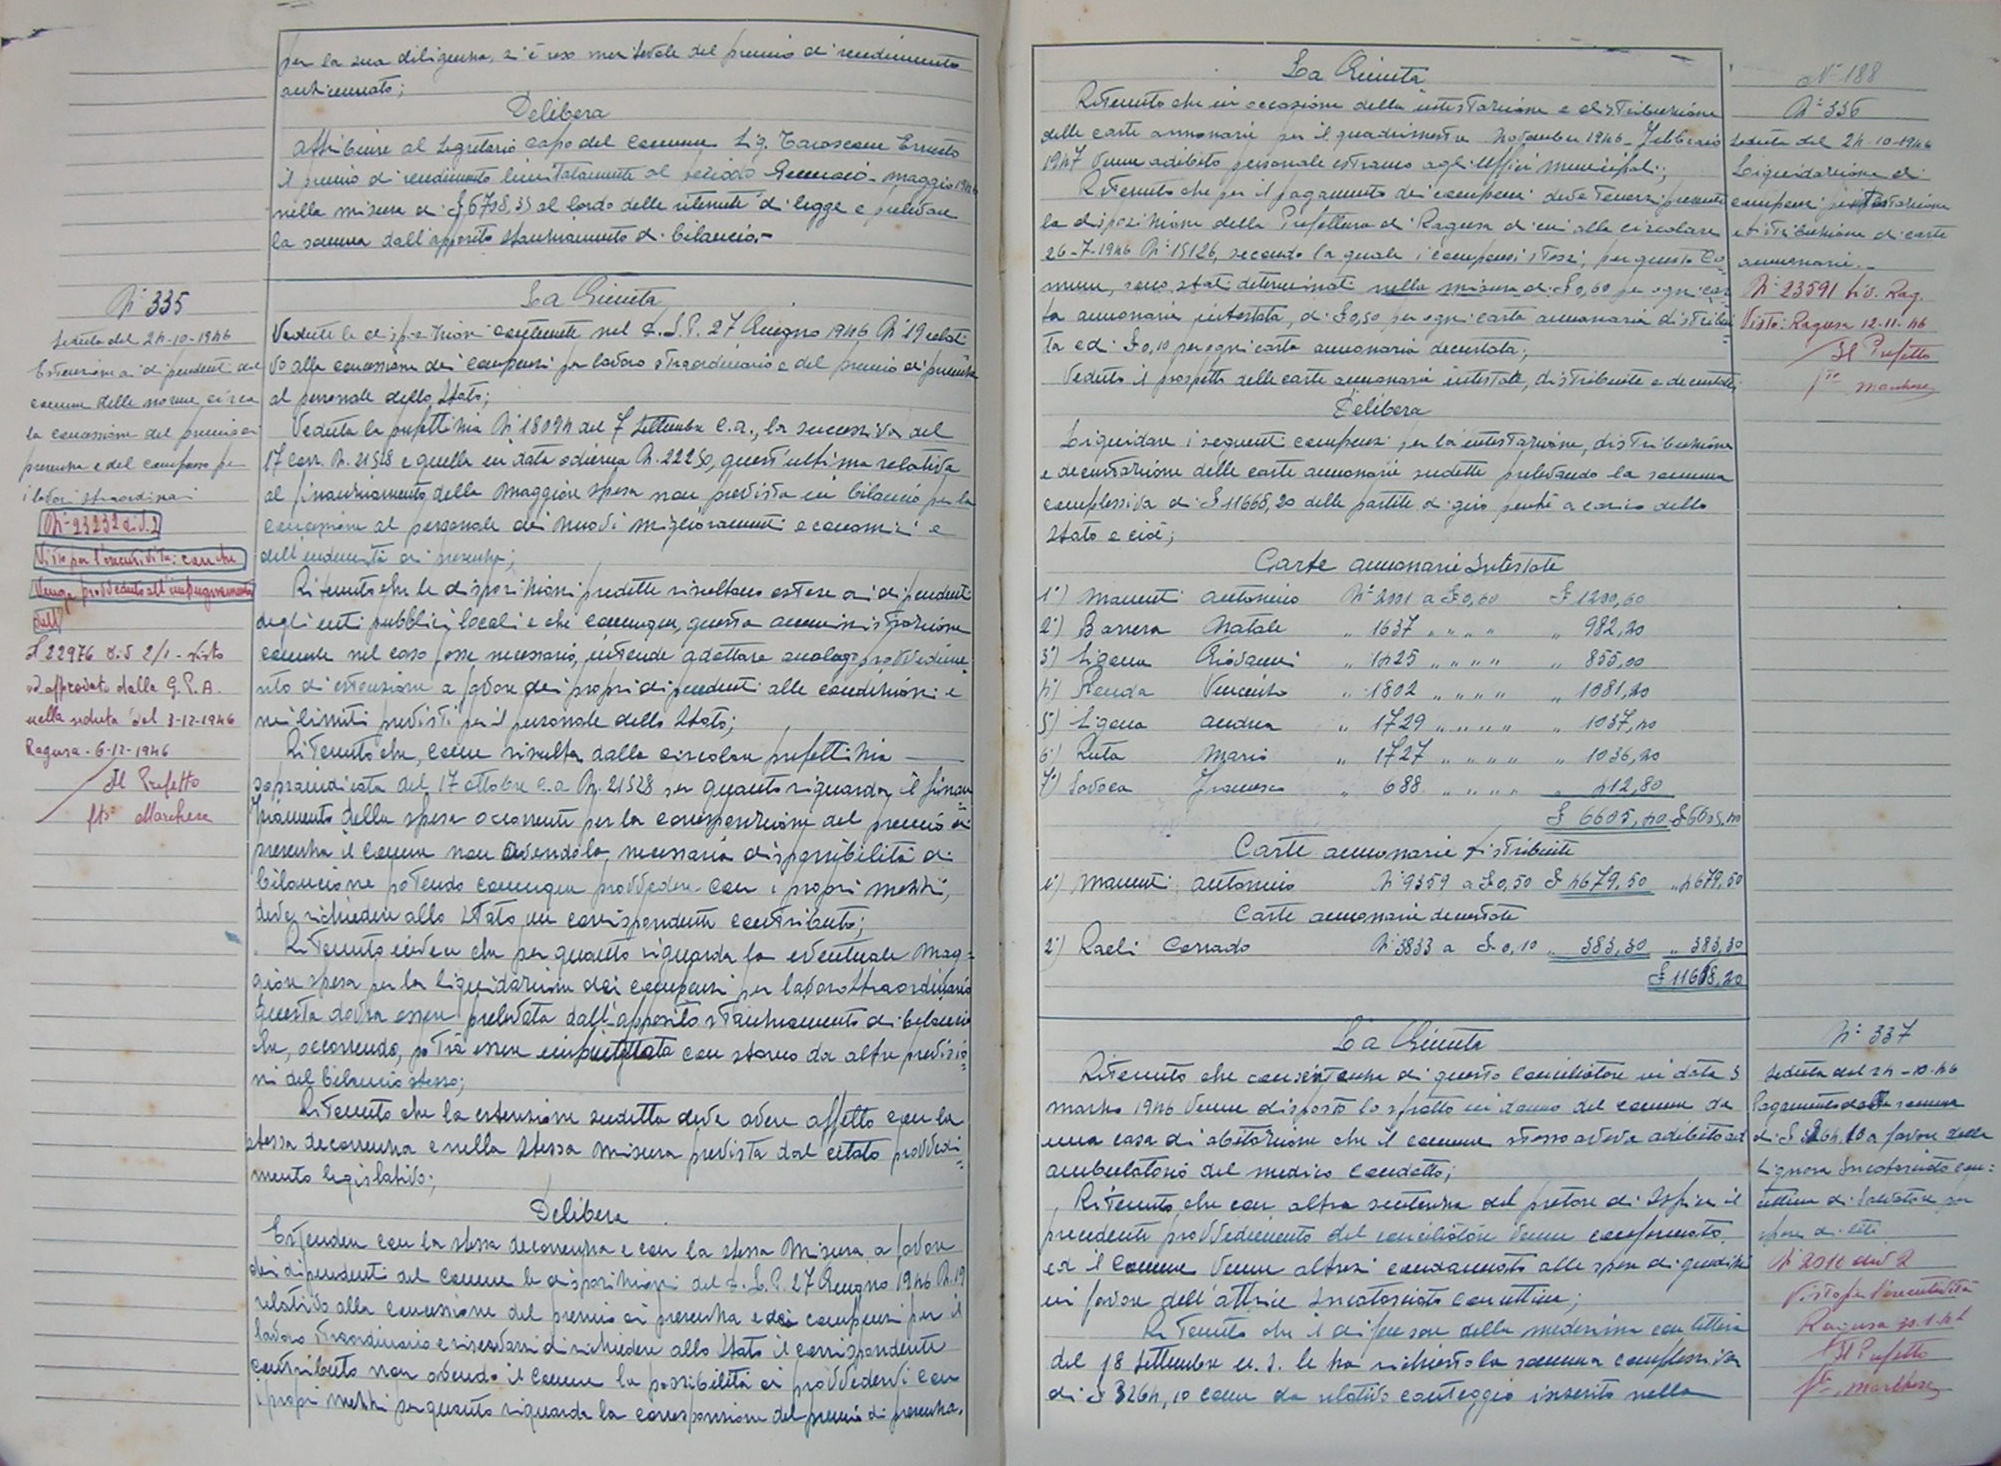 per la sua diligenza, si è reso meritevole del premio di rendimento
anticennato;
Delibera
Attribuire al Segretario capo del Comune Sig. Ernesto
il premio di rendimento limitatamente al periodo Gennaio - Maggio 1946
nella misura di £ 6798,35 al lordo delle ritenute di legge e prelevare
la somma dall'apposito stanziamento di bilancio.-
N° 335
Seduta del 24-10-1946
Estensione ai dipendenti del
comune delle norme circa
la concessione del premio di
presenza e del compenso per
i lavori straordinari
N° 23232 div. 2
Visto per l'esecutività: con che
venga provveduto all'impinguamento
dell
N 22976 div 2/1 - visto
ed approvato dalla G.P.A.
nella seduta del 3-12-1946
Ragusa - 6-12-1946
Il Prefetto
fto Marchese
La Giunta
Vedute le disposizioni contenute nel d.L.P. 27 Giugno 1946 N° 19 relati
vo alla concessione dei compensi per lavoro straordinario e del premio di presenza
al personale dello Stato;
Veduta la prefettizia N° 18094 del 7 Settembre c.a., la successiva del
17 corr. N. 21528 e quella in data odierna N. 22250, quest'ultima relativa
al finanziamento della maggiore spesa non prevista in bilancio per la
concessione al personale dei nuovi miglioramenti economici e
dell'indennità di presenza;
Ritenuto che le disposizioni predette risultano estese ai dipendenti
degli enti pubblici locali e che comunque, questa amministrazione
comunale nel caso fosse necessario, intende adottare analogo provvedime
nto di estensione a favore dei propri dipendenti alle condizioni e
nei limiti previsti per il personale dello Stato;
Ritenuto che, come risulta dalla circolare prefettizia
sopraindicata del 17 ottobre c.a N. 21528 per quanto riguarda il finan=
ziamento della spesa occorrente per la corresponsione del premio di
presenza il Comune non avendo la necessaria disponibilità di
bilancio ne potendo comunque provvedere con i propri mezzi,
deve richiedere allo Stato un corrispondente contributo;
Ritenuto invece che per quanto riguarda la eventuale mag=
giore spesa per la liquidazione dei compensi per lavoro straordinario
questa dovrà essere prelevata dall'apposito stanziamento di bilancio
che, occorrendo, potrà essere impinguata con storno da altre previsio=
ni del bilancio stesso;
Ritenuto che la estensione suddetta deve avere effetto con la
stessa decorrenza e nella stessa misura prevista dal citato provvedi=
mento legislativo;
Delibera
Estendere con la stessa decorrenza e con la stessa misura, a favore
dei dipendenti del Comune le disposizioni del d.L.P. 27 Giugno 1946 N. 19
relativo alla concessione del premio di presenza e dei compensi per il
lavoro straordinario e riservarsi di richiedere allo Stato il corrispondente
contributo non avendo il Comune la possibilità di provvedervi con
i propri mezzi per quanto riguarda la corresponsione del premio di presenza.
La Giunta
Ritenuto che in occasione della intestazione e distribuzione
delle carte annonarie per il quadrimestre Novembre 1946 - Febbraio
1947 venne adibito personale estraneo agli uffici municipali;
Ritenuto che per il pagamento dei compensi deve tenersi presente
la disposizione della Prefettura di Ragusa di cui alla circolare
26-7-1946 N° 15126, secondo la quale i compensi stessi, per questo Co=
mune, sono stati determinati nella misura di £ 0,60 per ogni car
ta annonaria intestata, di £ 0,50 per ogni carta annonaria distribui
ta e di £ 0,10 per ogni carta annonaria decurtata;
Veduto il prospetto delle carte annonarie intestate, distribuite e decurtate;
Delibera
Liquidare i seguenti compensi per la intestazione, distribuzione
e decurtazione delle carte annonarie suddette prelevando la somma
complessiva di £ 11668,20 delle partite di giro perchè a carico dello
Stato e cioè;
Carte annonarie Intestate
1°) Manenti Antonino N° 2001 a £ 0,60 £ 1200,60
2°) Barrera Natale " 1637 " " " " " 982,20
3°) Ligama Giovanni " 1425 " " " " " 855,00
4°) Renda Vincenzo " 1802 " " " " " 1081,20
5°) Ligama Andrea " 1729 " " " " " 1037,40
6°) Ruta Mario " 1727 " " " " " 1036,20
7°) Savoca Francesco " 688 " " " " " 412,80
£ 6605,40 £ 6605,40
Carte annonarie distribuite
1°) Manenti Antonino N° 9359 a £ 0,50 £ 4679,50 " 4679,50
Carte annonarie decurtate
2°) Raeli Corrado N° 3833 a £ 0,10 " 383,30 " 383,30
£ 11668,20
N° 188
N° 336
Seduta del 24-10-1946
Liquidazione di
compensi per intestazione
e distribuzione di carte
annonarie.-
N° 23591 Div. Rag.
Visto: Ragusa 12-11-46
Il Prefetto
fto Marchese
La Giunta
Ritenuto che con sentenza di questo Conciliatore in data 5
marzo 1946 venne disposto lo sfratto in danno del comune da
una casa di abitazione che il comune stesso aveva adibito ad
ambulatorio del medico condotto;
Ritenuto che con altra sentenza del pretore di Ispica il
precedente provvedimento del conciliatore venne confermato
ed il Comune venne altresì condannato alle spese di giudizio
in favore dell'attrice Incatasciato Concettina;
Ritenuto che il difensore della medesima con lettera
del 18 Settembre u.s. le ha richiesto la somma complessiva
di £ 3264,10 come da relativo conteggio inserito nella
N° 337
Seduta del 24-10-46
Pagamento della somma
di £ 3264,10 a favore della
Signora Incatasciato Con=
cettina di Salvatore per
spese di liti
N° 2012 div 2
Visto per l'esecutività
Ragusa
Il Prefetto
fto Marchese